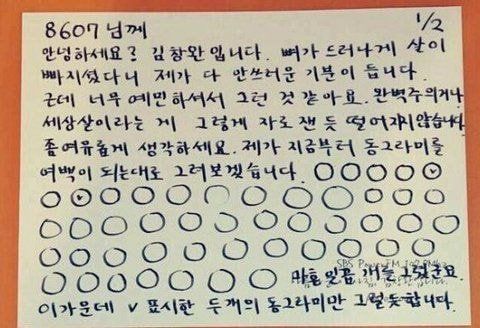 8607님께 1/2
안녕하세요? 김창완입니다. 뼈가 드러나게 살이
빠지셨다니 제가 다 안쓰러운 기분이 듭니다.
근데 너무 예민하셔서 그런 것 같아요. 완벽주의거나
세상살이라는 게 그렇게 자로 잰 듯 떨어지지 않습니다
좀 여유롭게 생각하세요. 제가 지금부터 동그라미를
여백이 되는대로 그려보겠습니다.
SBS PowerFM 107.7Mhz
마흔 일곱 개를 그렸군요.
이 가운데 v 표시한 두 개의 동그라미만 그럴듯합니다.